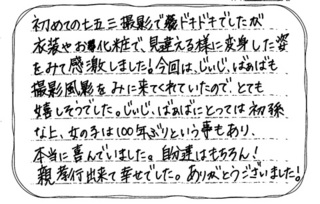 初めての七五三撮影でドキドキでしたが
衣装やお化粧で、見違える様に変身した姿
をみて感激しました！今回は、じいじ、ばぁばも
撮影風影をみに来てくれていたので、とても
嬉しそうでした。じいじ、ばぁばにとっては初孫
な上、女の子は100年ぶりという事もあり、
本当に喜んでいました。自分達はもちろん！
親孝行出来て幸せでした。ありがとうございました！